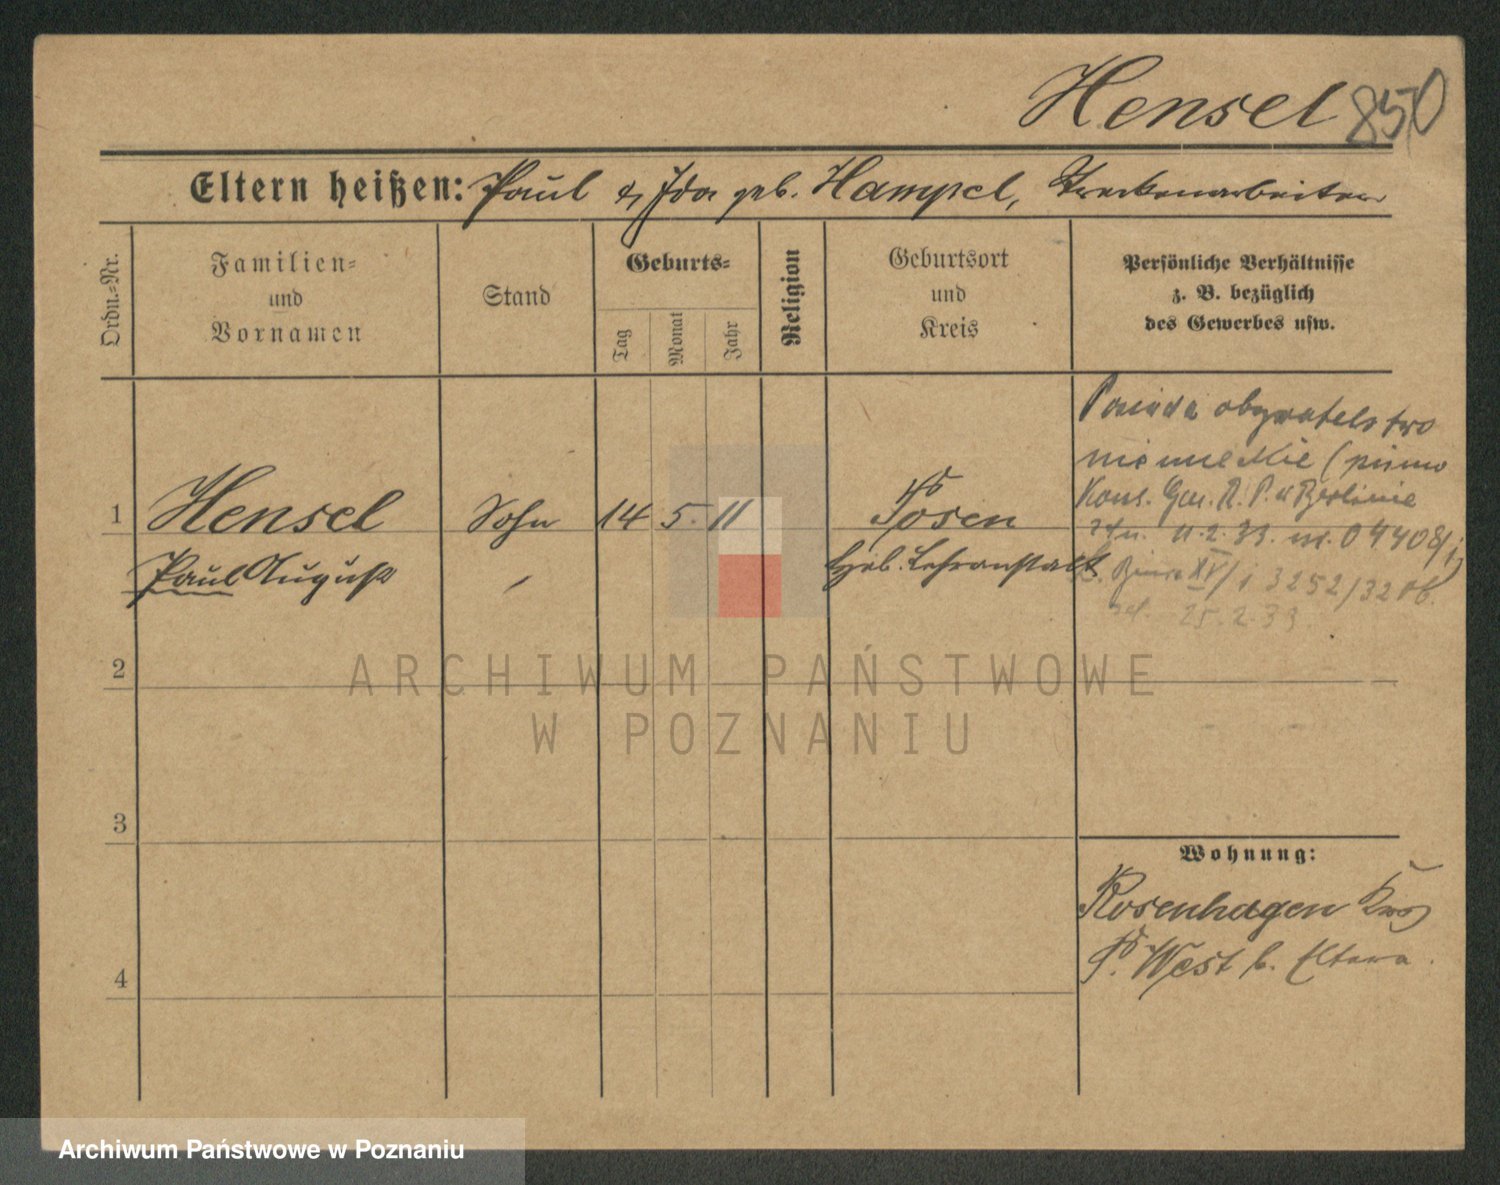 Hensel 850
Eltern heißen: Paul & Ida geb. Hampel, Streckenarbeiter
Ordn.=Nr.
Familien=
und
Vornamen
Stand
Geburts=
Tag
Monat
Jahr
Religion
Geburtsort
und
Kreis
Persönliche Verhältnisse
z. B. bezüglich
des Gewerbes usw.
Posiada obywatelstwo
niemieckie (pismo
Kons. Gen. R. P. w Berlinie
z dn. 11.2.33. nr. 04408/
XV/ 3252/32
25.2.33
1 Hensel Sohn 14 5. 11 Posen
Paul August Heb. Lehranstalt
2
3
4
Wohnung:
Rosenhagen Krs
P. West b. Eltern.
ARCHIWUM PAŃSTWOWE
W POZNANIU
Archiwum Państwowe w Poznaniu